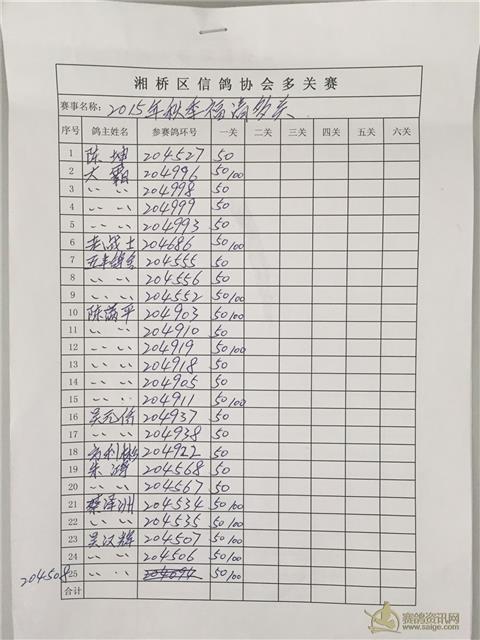 湘桥区信鸽协会多关赛
赛事名称: 2015年秋季福清多关
序号 鸽主姓名 参赛鸽环号 一关 二关 三关 四关 五关 六关
1 陈坤 204527 50
2 大霸 204996 50/100
3 〃 〃 204998 50
4 〃 〃 204999 50
5 〃 〃 204993 50
6 老战士 204686 50/100
7 204555 50
8 〃 〃 204556 50
9 〃 〃 204552 50/100
10 陈萬平 204903 50/100
11 〃 〃 204910 50
12 〃 〃 204919 50/100
13 〃 〃 204918 50
14 〃 〃 204905 50
15 〃 〃 204911 50/100
16 204937 50
17 〃 〃 204938 50
18 204922 50
19 204568 50
20 〃 〃 204567 50
21 蔡泽洲 204534 50/100
22 〃 〃 204535 50/100
23 吴汉辉 204507 50/100
24 〃 〃 204506 50/100
204508 25 〃 〃 50/100
合计
赛鸽资讯网
www.saige.com